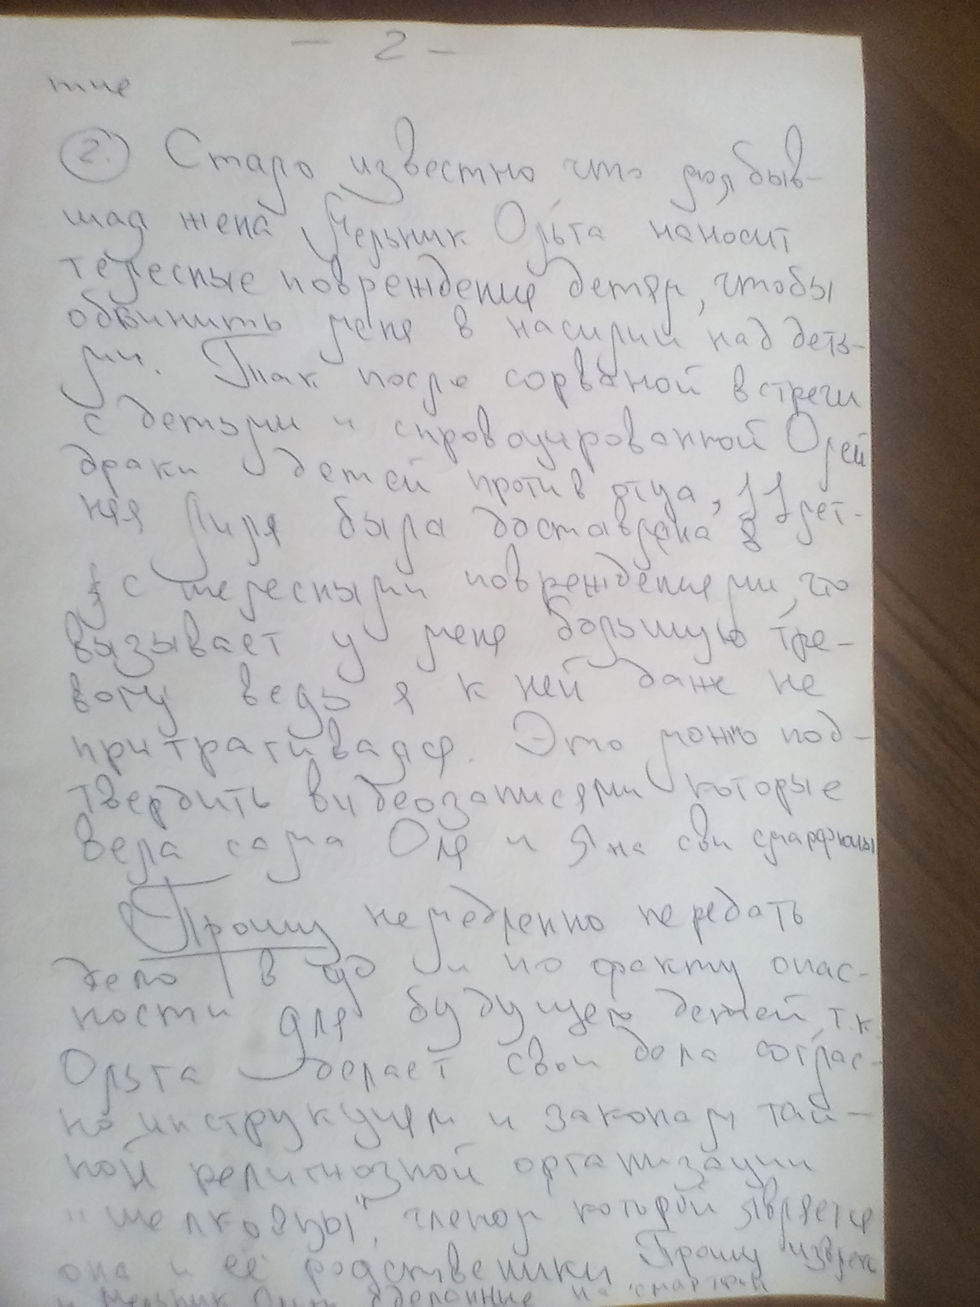 - 2 -
тие
2. Стало известно что моя быв-
шая жена Мельник Ольга наносит
телесные повреждение детям, чтобы
обвинить меня в насилии над деть-
ми. Так после сорваной встречи
с детьми и спровоцированной Олей
драки детей против отца, 11 лет-
няя Лиля была доставлена в
с телесными повреждениями, что
вызывает у меня большую тре-
вогу ведь я к ней даже не
притрагивался. Это можно под-
твердить видеозаписями которые
вела сама Оля и я на сви смартфоны
Прошу немедленно передать
дело в и по факту опас-
ности для будущего детей, т.к
Ольга делает свои дела соглас-
но инструкциям и законам тай-
ной религиозной организации
"шелковцы", членом которой является
она и её родственики Прошу
Мельник на смартфон